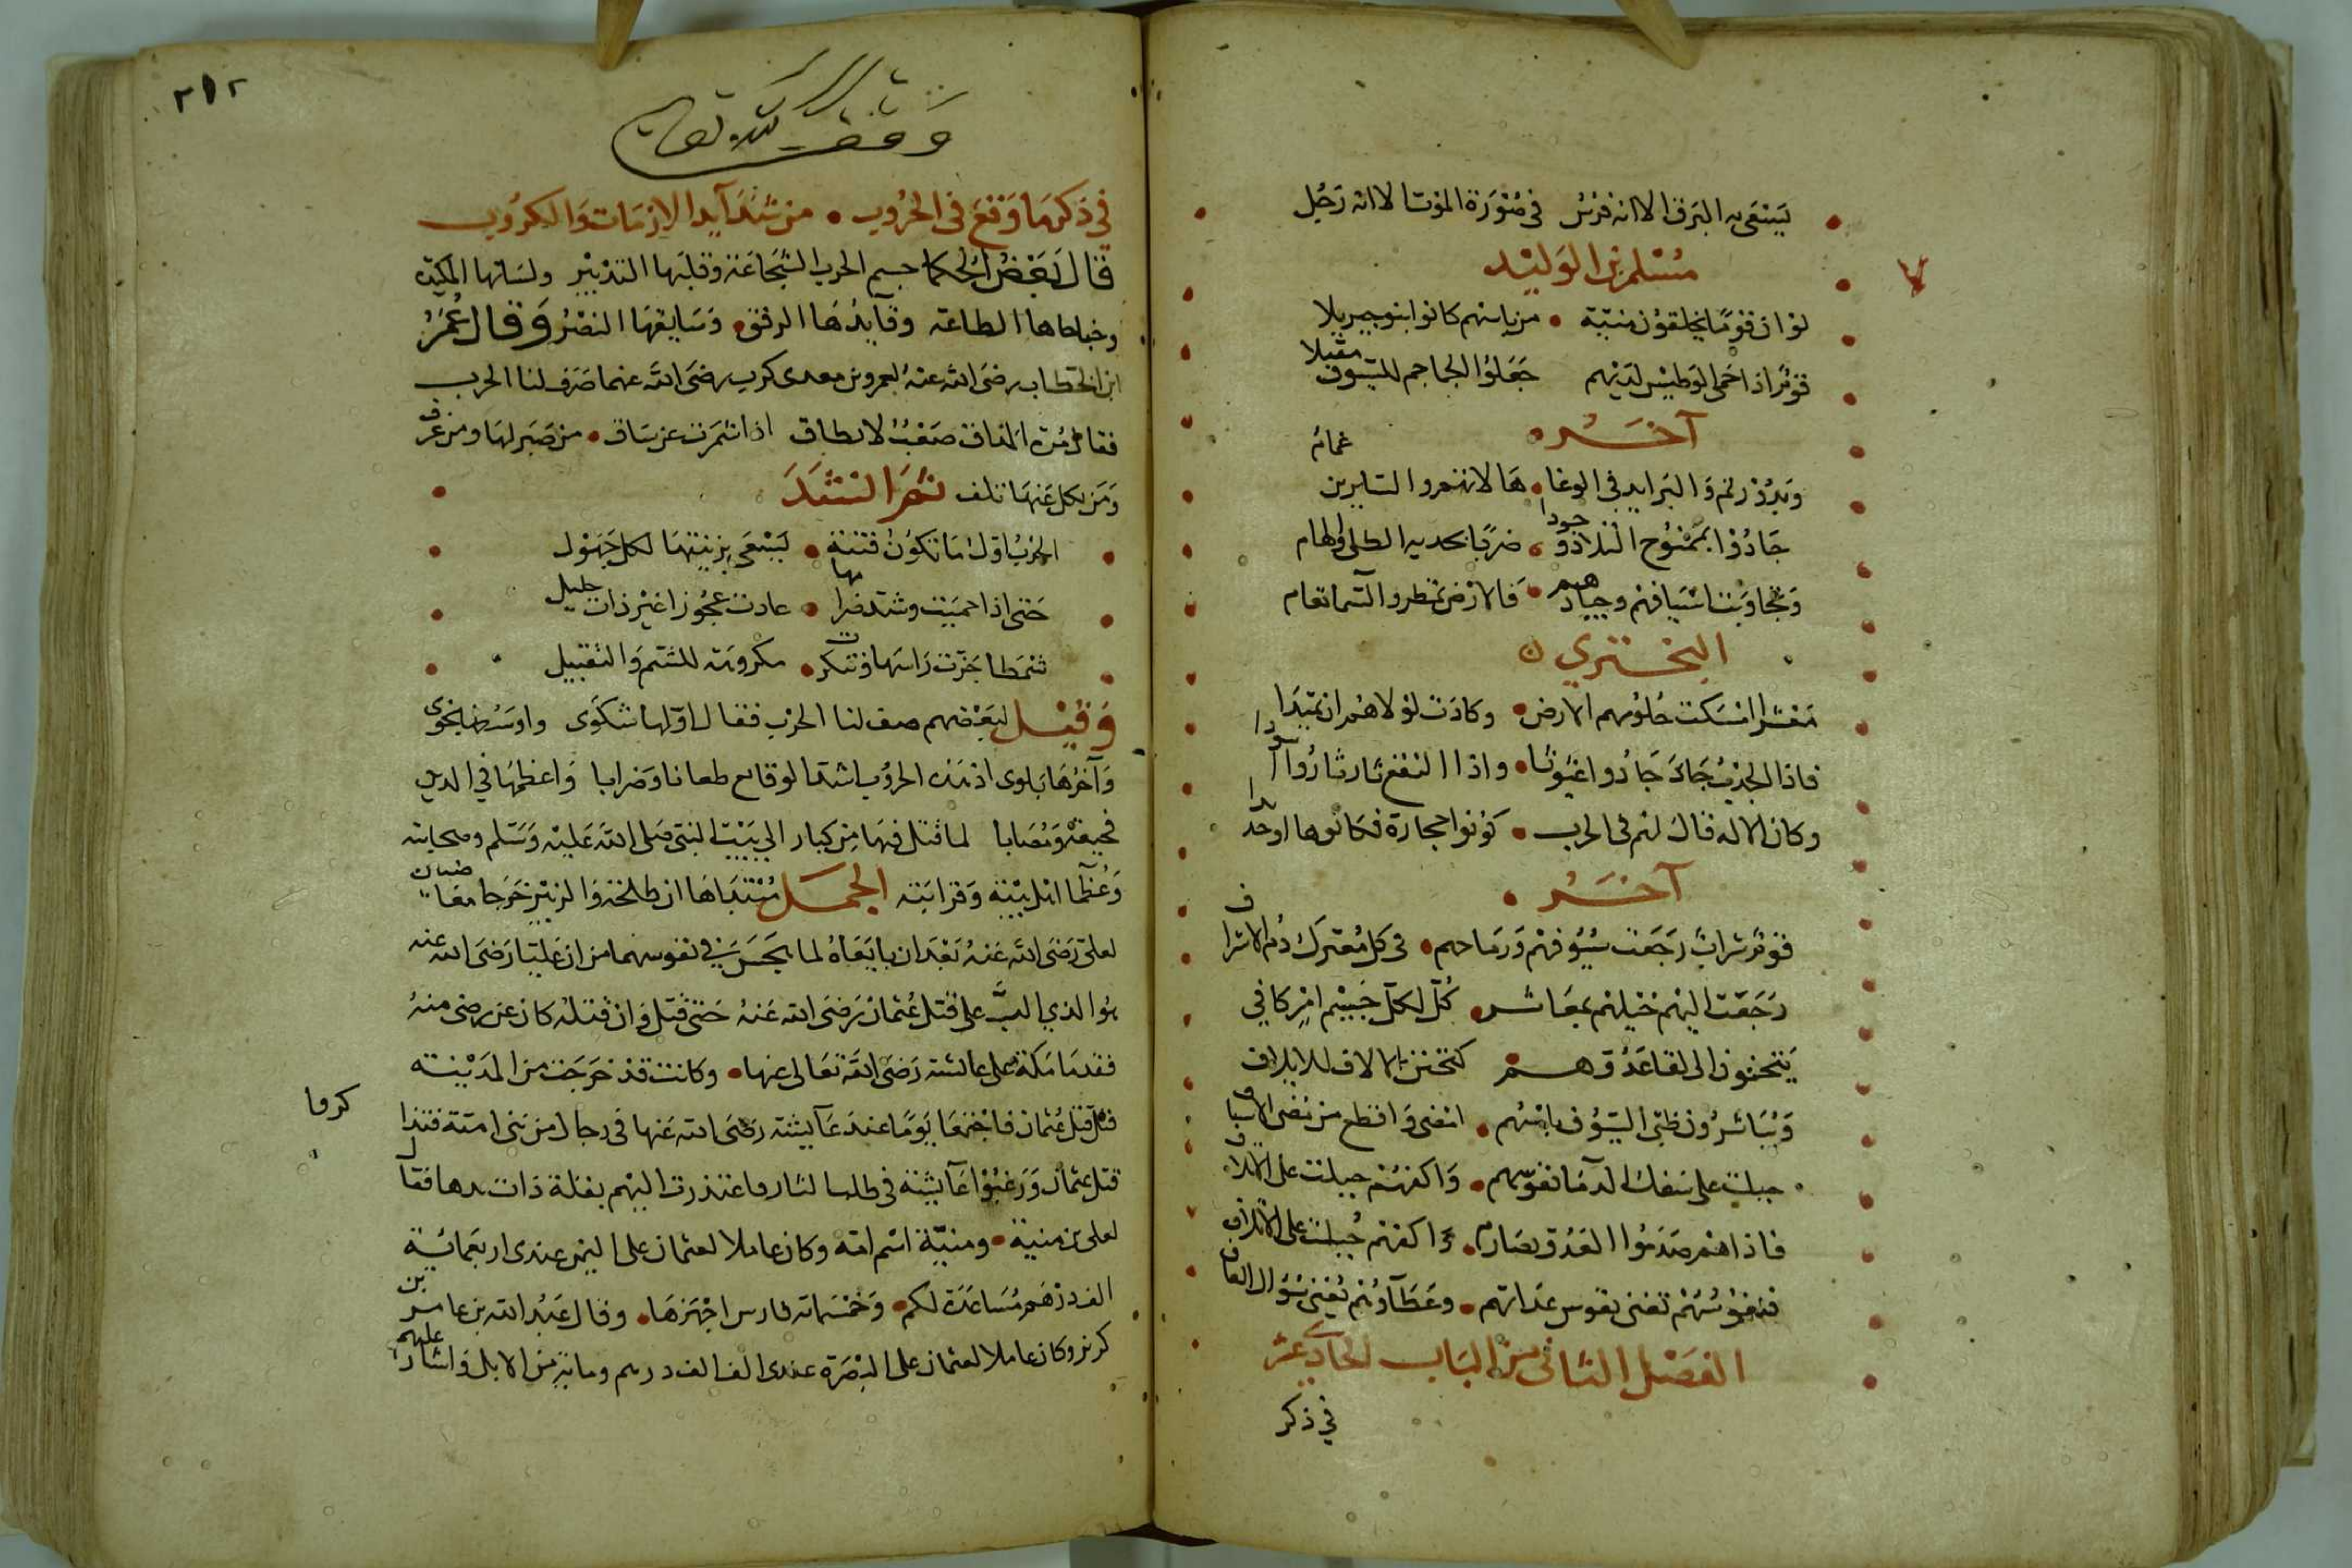 يسعى به البرق الا انه فرس في صورة الموت الا انه رجل
مسلم بن الوليد
لو ان قوما يخلقون منية • من باسهم كانوا بنو جبريلا
قوم اذا احمى الوطيس لديهم جعلوا الجماجم للسيوف مقيلا
آخر
جادوا بممنوح التلاد وجودوا • ضربا بحديه الطلى والهام
وتجاوبت اسيافهم وجيادهم • فالارض تمطر والسما تغام
البحتري
معشر امسكت حلومهم الارض • وكادت لولاهم ان تميدا
فاذا الجدب جاد جادوا غيوثا • واذا النقع ثار ثاروا اسودا
وكان الاله قال لهم في الحرب • كونوا حجارة فكانوها او حديدا
آخر
قوم شراب سيوفهم ورماحهم • في كل معترك دم الاشراف
رجعت اليهم خيلهم بمعاشر • كل لكل جسيم امر كافي
يتحننون الى لقا عدوهم كتحنن الالاف للايلاف
ويباشرون ظبي السيوف بانفس • امضى واقطع من مضى الاسياف
جبلت على سفك الدما نفوسهم • واكفهم جبلت على الاتلاف
فاذا هم صدموا العدو بصارم • واكفهم جبلت على الاتلاف
فنفوسهم تفنى نفوس عداتهم • وعطاؤهم يغني سؤال العاف
الفصل الثاني من الباب الحادي عشر
في ذكر
٢١٢
وقف لله تعالى
في ذكر ما وقع في الحروب • من شدآيد الازمات والكروب
قال بعض الحكما جسم الحرب الشجاعة وقلبها التدبير ولسانها المكيدة
وجناحاها الطاعة وقآيدها الرفق • وسايقها النصر وقال عمر
ابن الخطاب رضى الله عنه لعمرو بن معدى كرب رضى الله عنهما صف لنا الحرب
فقال مرة المذاق صعب لا يطاق اذا شمرت عن ساق • من صبر لها ومن عرف
ومن نكل عنها تلف ثم انشد
الحرب اول ما تكون فتنة • تسعى بزينتها لكل جهول
حتى اذا حميت وشد ضرامها • عادت عجوزا غير ذات حليل
شمطا جزت راسها وتنكرت • مكروهة للشم والتقبيل
وقيل لبعضهم صف لنا الحرب فقال اولها شكوى واوسطها نجوى
وآخرها بلوى اشد الوقايع طعانا وضرابا واعظمها في الدين
فجيعة ومصابا لما قتل فيها من كبار اهل بيت النبي صلى الله عليه وسلم وصحابته
وعظما اهل بيته وقرابته الجمل مبتداها ان طلحة والزبير خرجا مغاضبان
لعلي رضى الله عنه بعد ان بايعاه لما يحس في نفوسهما من ان عليا رضى الله عنه
هو الذي الب على قتل عثمان رضى الله عنه حتى قتل وان قتله كان عن رضى منه
فقدما مكة على عائشة رضى الله تعالى عنها • وكانت قد خرجت من المدينة
قبل قتل عثمان فاجتمعا يوما عند عآيشة رضى الله عنها في رجال من بني امية فتذاكروا
قتل عثمان ورغبوا عآيشة في طلب الثار فاعتذرت اليهم بقلة ذات يدها فقال
يعلى بن منية • ومنية اسم امه وكان عاملا لعثمان على اليمن عندى اربعمائة
الف درهم مساعدة لكم • وخمسمائة فارس اجهزها • وقال عبد الله بن عامر بن
كريز وكان عاملا لعثمان على البصرة عندى الف الف درهم وماية من الابل واشار عليهم